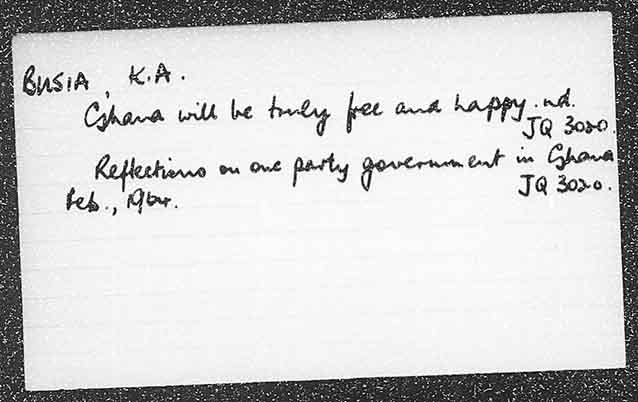 BUSIA, K.A.
Ghana will be truly free and happy. nd.
JQ 3020.
Reflections on one party government in Ghana
Feb., 1964.
JQ 3020.